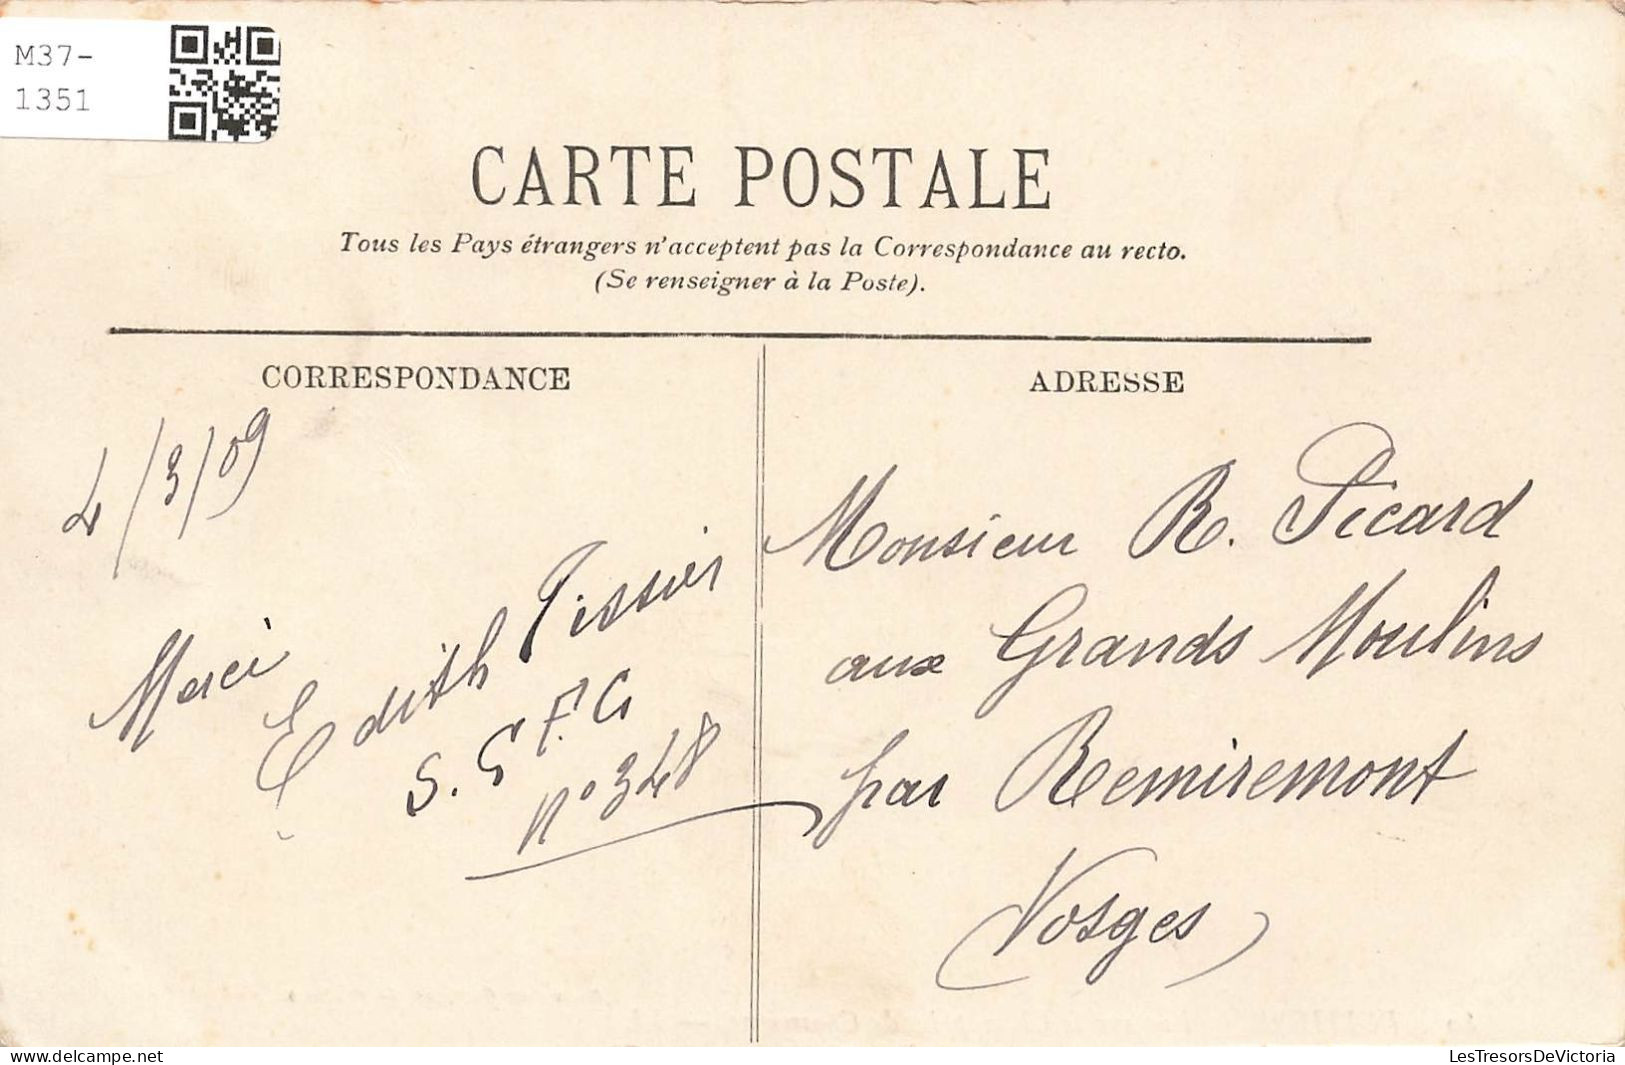 M37-
1351
CARTE POSTALE
Tous les Pays étrangers n'acceptent pas la Correspondance au recto.
(Se renseigner à la Poste).
CORRESPONDANCE
4/3/09
Merci
Edith Tissier
S. G F. C
n° 348
ADRESSE
Monsieur R. Picard
aux Grands Moulins
par Remiremont
(Vosges)
delcampe.net
LesTresorsDeVictoria